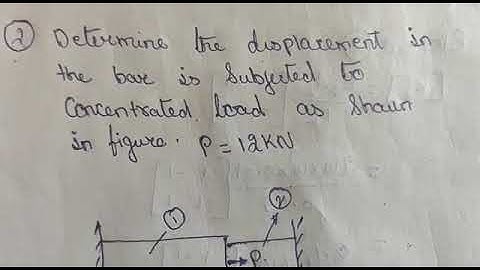 ② Determine the displacement in
the bar is Subjected to
Concentrated load as Shown
in figure. P = 12KN
① ②
P